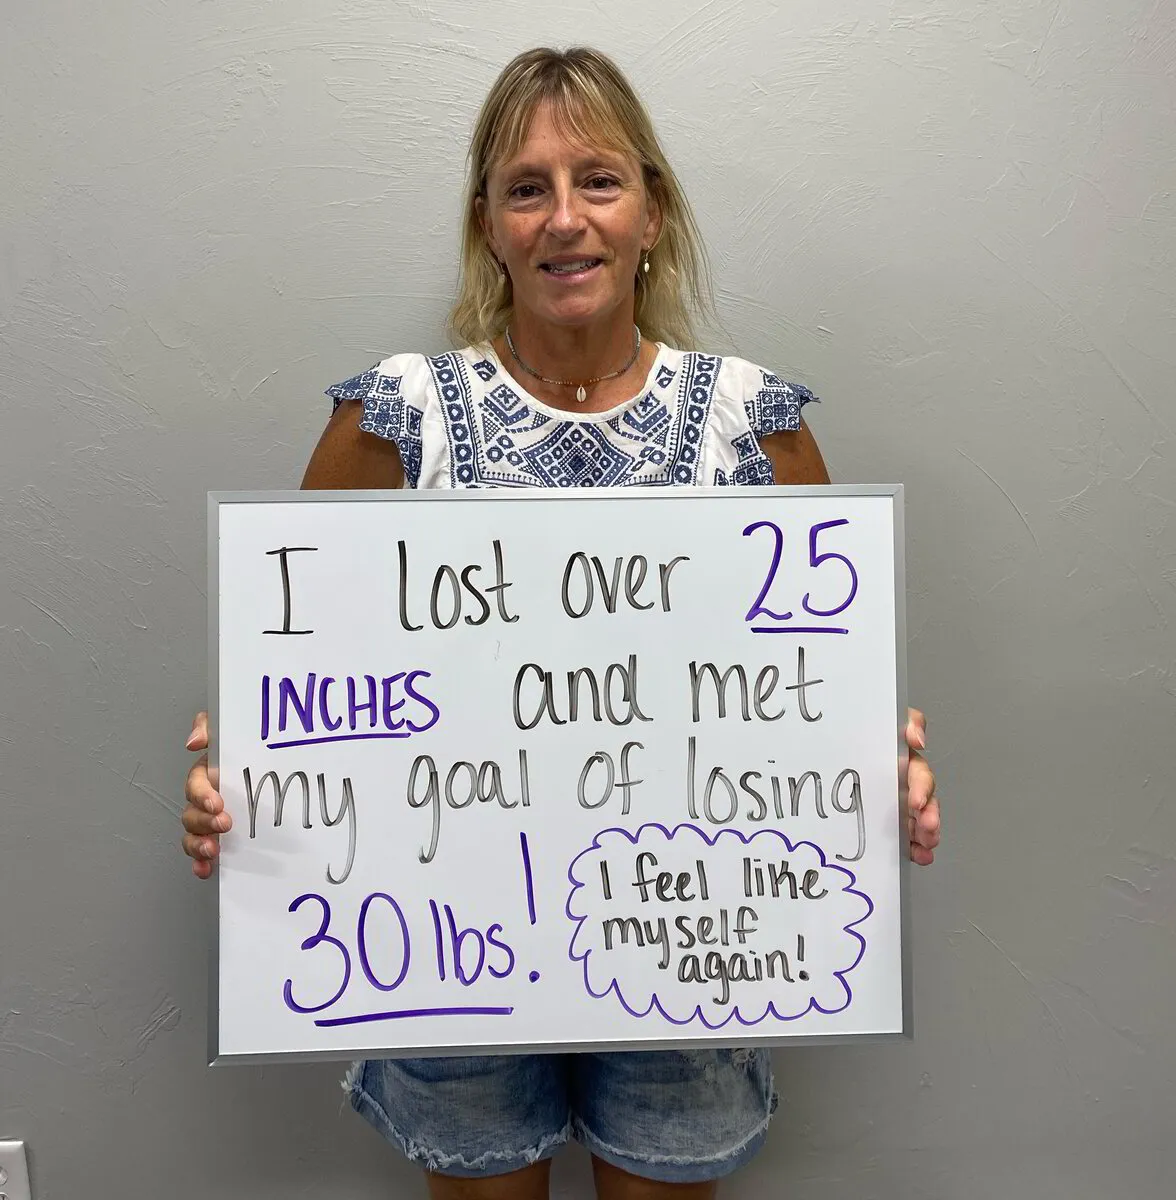 I lost over 25
INCHES and met
my goal of losing
30 lbs!
I feel like
myself
again!